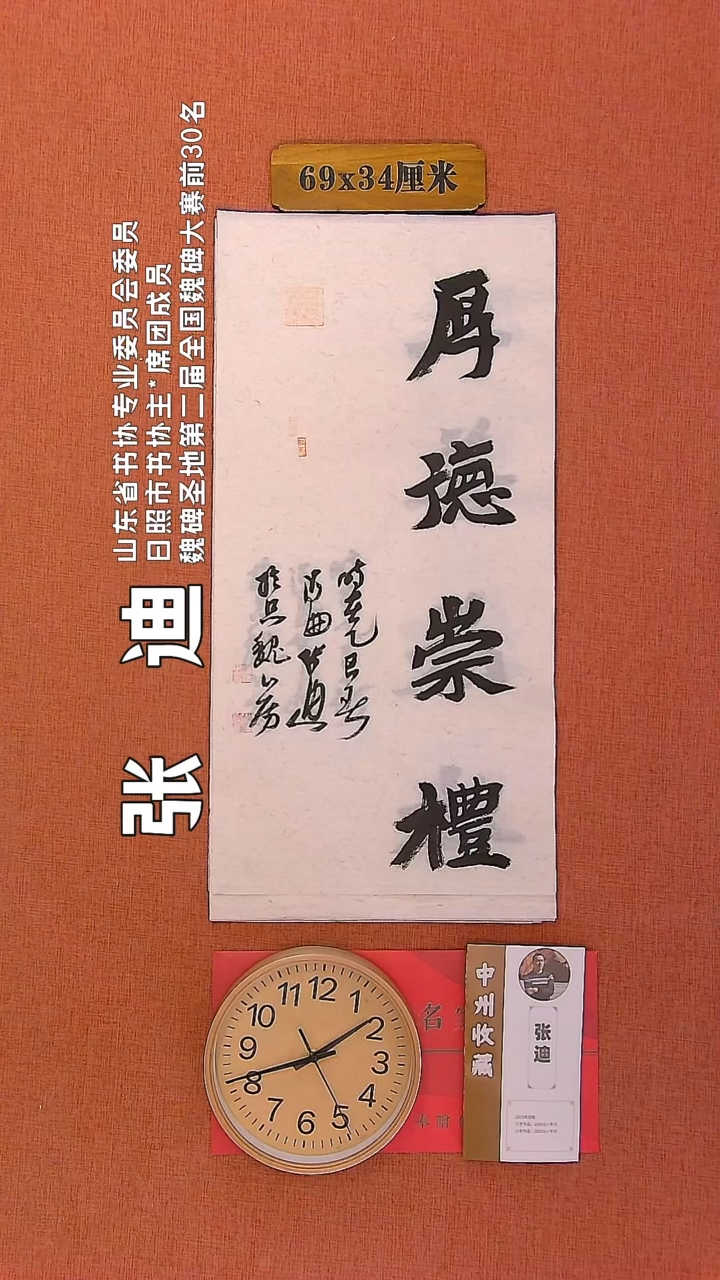 69x34厘米
厚德崇禮
時在乙巳春
张迪
山东省书协专业委员会委员
日照市书协主*席团成员
魏碑圣地第二届全国魏碑大赛前30名
12
1
2
3
4
5
6
7
8
9
10
11
名
中州收藏
张迪